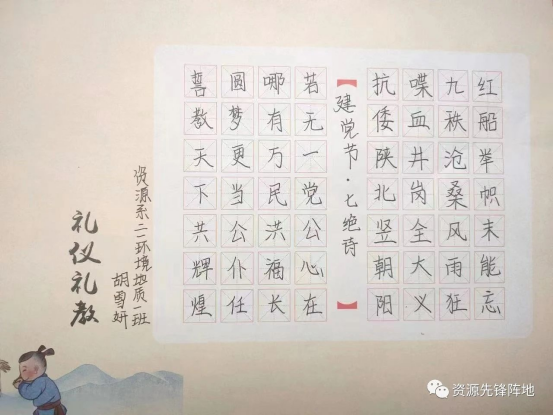 红船举帜末能忘
九秩沧桑风雨狂
喋血井岗全大义
抗倭陕北竖朝阳
【建党节·七绝诗】
若无一党公心在
哪有万民洪福长
圆梦更当公仆任
誓教天下共辉煌
资源系二一环境地质一班
胡雪妍
礼仪礼教
资源先锋阵地